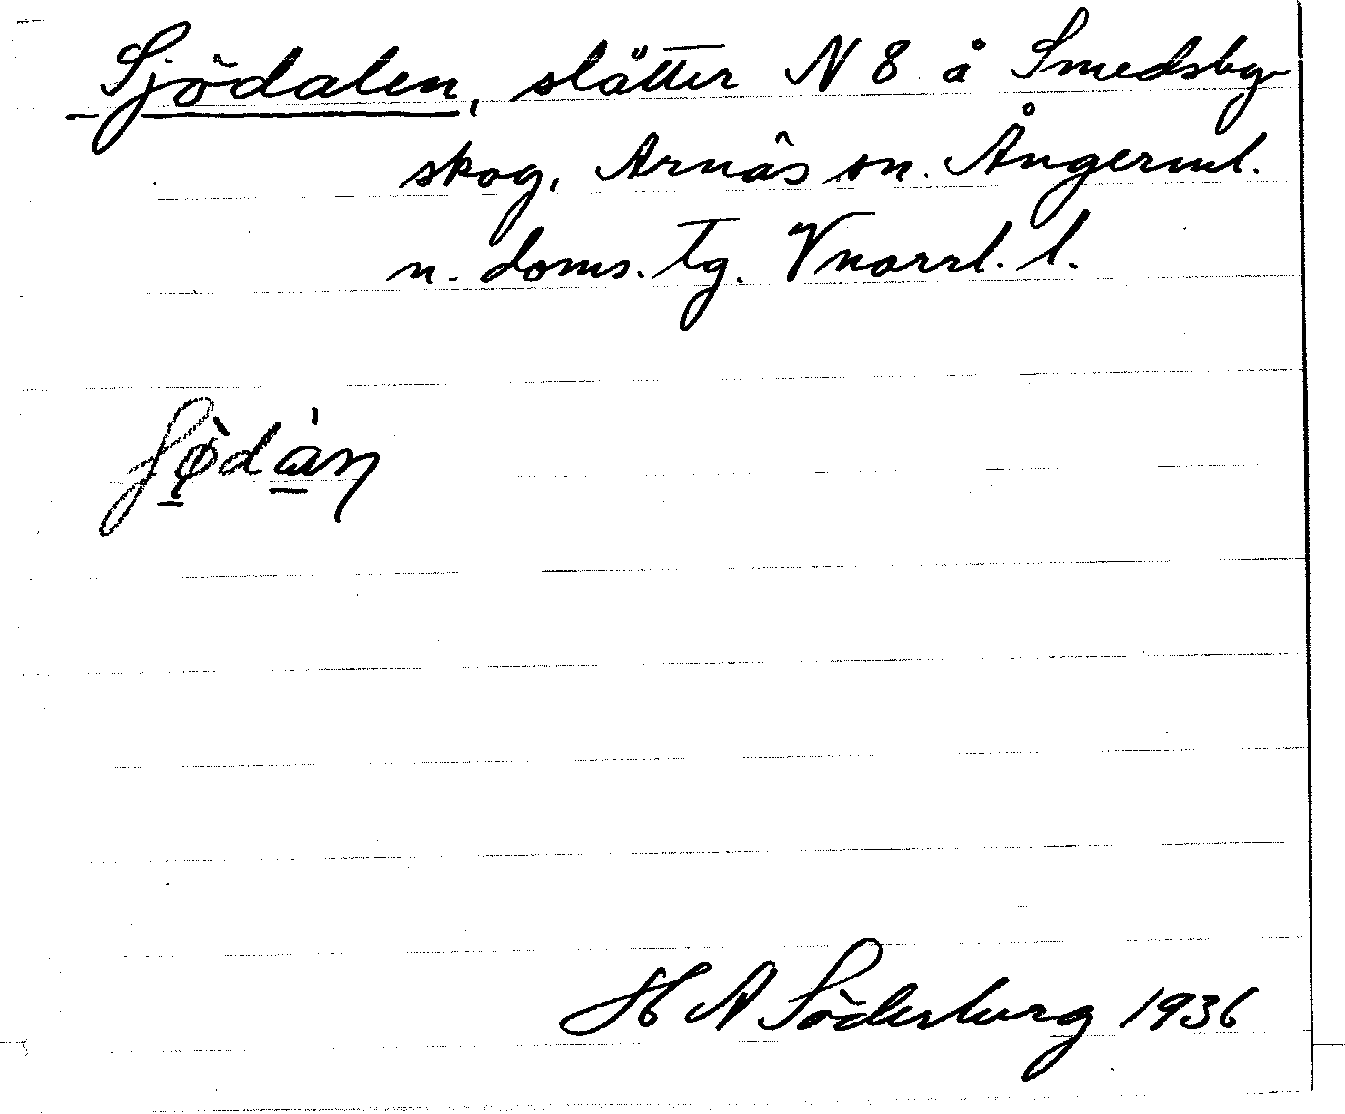 Sjödalen, slåtter N 8 å Smedsby
skog, Arnäs sn. Ångerml.
n. doms. tg. Vnorrl. l.
H A Söderberg 1936